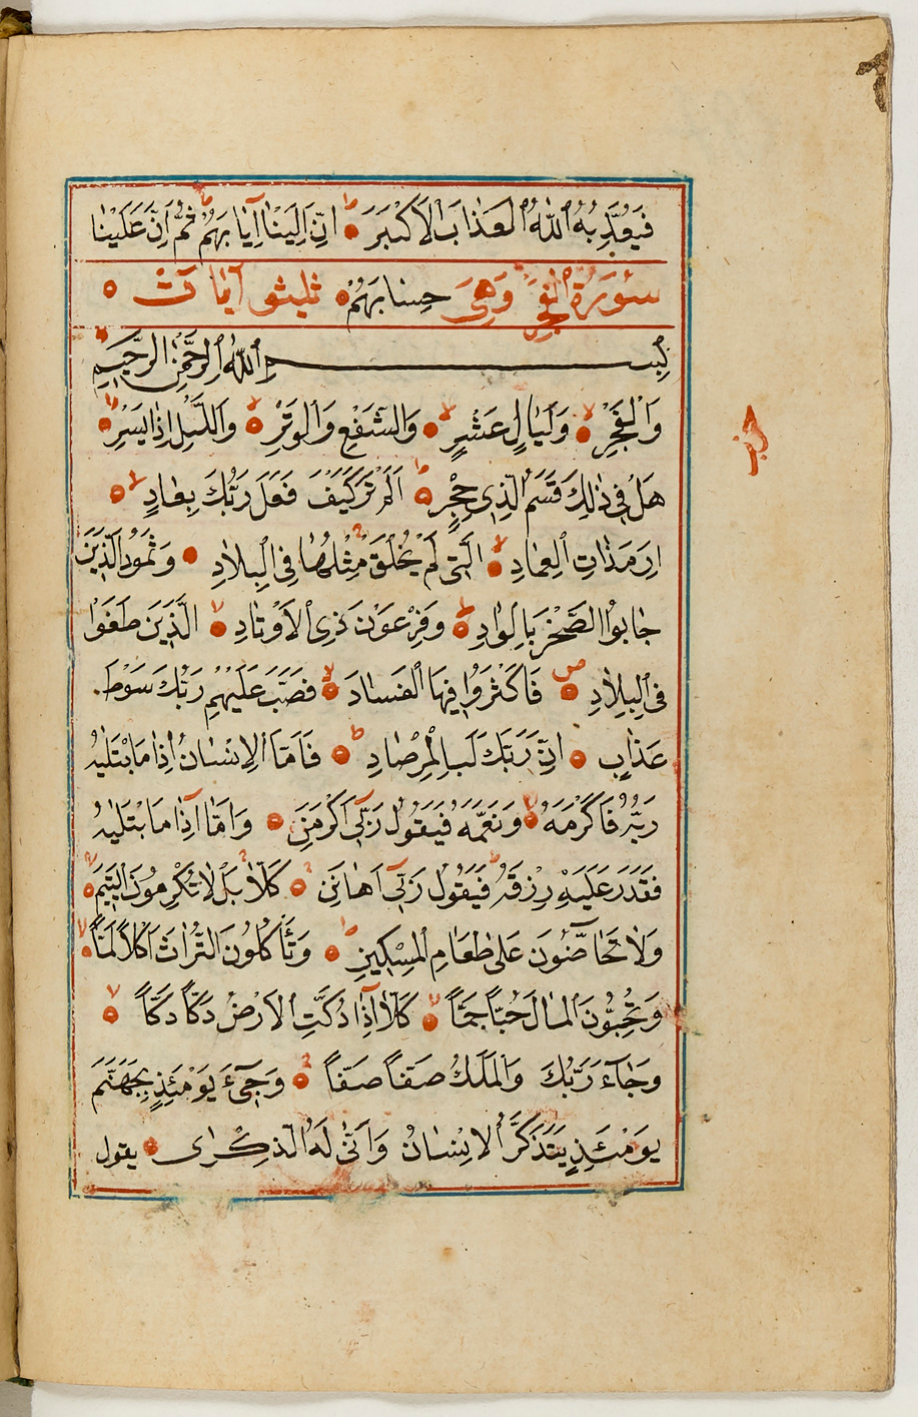 فَيُعَذِّبُهُ اللّٰهُ الْعَذَابَ الْاَكْبَرَ ۝ اِنَّ اِلَيْنَا اِيَابَهُمْ ثُمَّ اِنَّ عَلَيْنَا
سُورَةُ الْفَجْرِ وَهِيَ حِسَابَهُمْ ۝ ثلیثو آيَاتٌ ۝
بِسْمِ اللّٰهِ الرَّحْمٰنِ الرَّحِيمِ
وَالْفَجْرِ ۝ وَلَيَالٍ عَشْرٍ ۝ وَالشَّفْعِ وَالْوَتْرِ ۝ وَاللَّيْلِ اِذَا يَسْرِ ۝
حزب
هَلْ فِي ذٰلِكَ قَسَمٌ لِّذِي حِجْرٍ ۝ اَلَمْ تَرَ كَيْفَ فَعَلَ رَبُّكَ بِعَادٍ ۝
اِرَمَ ذَاتِ الْعِمَادِ ۝ الَّتِي لَمْ يُخْلَقْ مِثْلُهَا فِي الْبِلَادِ ۝ وَثَمُودَ الَّذِينَ
جَابُوا الصَّخْرَ بِالْوَادِ ۝ وَفِرْعَوْنَ ذِي الْاَوْتَادِ ۝ الَّذِينَ طَغَوْا
فِي الْبِلَادِ ۝ فَاَكْثَرُوا فِيهَا الْفَسَادَ ۝ فَصَبَّ عَلَيْهِمْ رَبُّكَ سَوْطَ
عَذَابٍ ۝ اِنَّ رَبَّكَ لَبِالْمِرْصَادِ ۝ فَاَمَّا الْاِنْسَانُ اِذَا مَا ابْتَلٰيهُ
رَبُّهُ فَاَكْرَمَهُ ۝ وَنَعَّمَهُ فَيَقُولُ رَبِّي اَكْرَمَنِ ۝ وَاَمَّا اِذَا مَا ابْتَلٰيهُ
فَقَدَرَ عَلَيْهِ رِزْقَهُ فَيَقُولُ رَبِّي اَهَانَنِ ۝ كَلَّا بَلْ لَا تُكْرِمُونَ الْيَتِيمَ ۝
وَلَا تَحَاضُّونَ عَلٰى طَعَامِ الْمِسْكِينِ ۝ وَتَأْكُلُونَ التُّرَاثَ اَكْلًا لَمًّا ۝
وَتُحِبُّونَ الْمَالَ حُبًّا جَمًّا ۝ كَلَّا اِذَا دُكَّتِ الْاَرْضُ دَكًّا دَكًّا ۝
وَجَاءَ رَبُّكَ وَالْمَلَكُ صَفًّا صَفًّا ۝ وَجِيءَ يَوْمَئِذٍ بِجَهَنَّمَ
يَوْمَئِذٍ يَتَذَكَّرُ الْاِنْسَانُ وَاَنّٰى لَهُ الذِّكْرٰى ۝ يقول